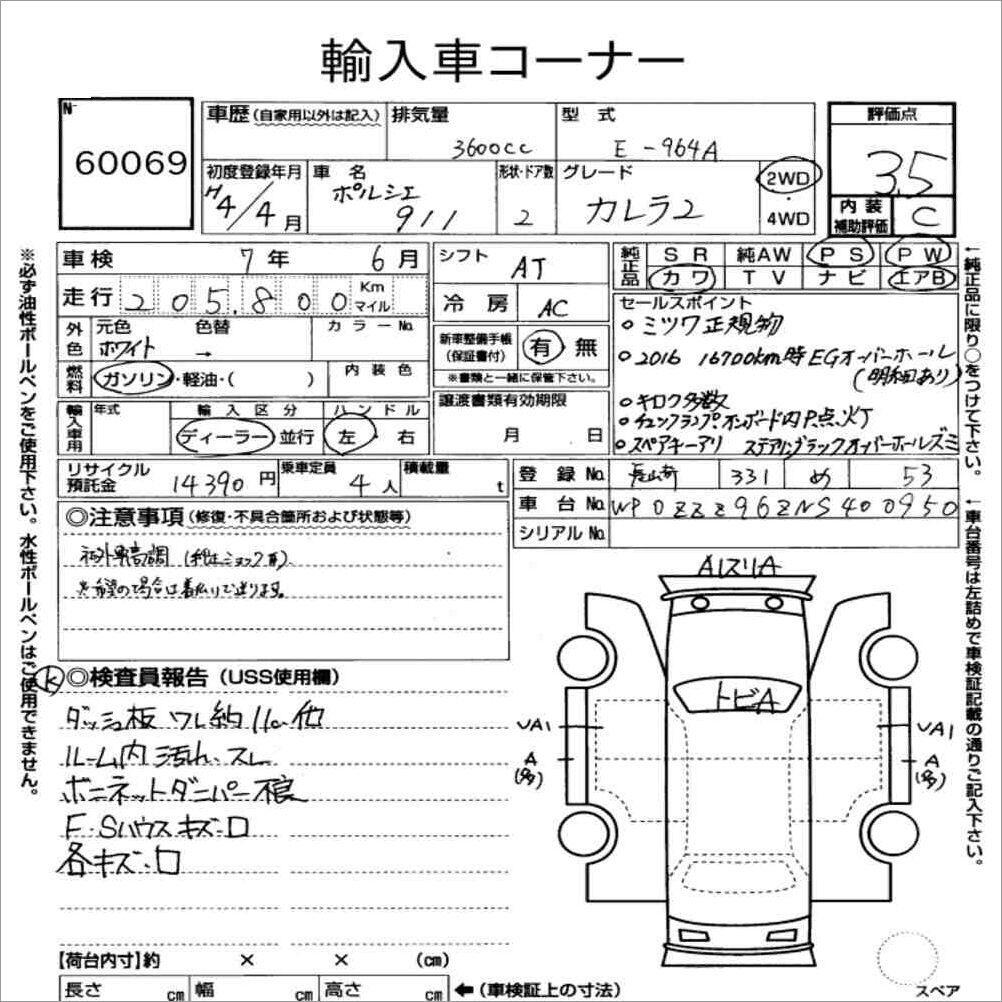 輸入車コーナー
N-
60069
車歴 (自家用以外は記入)
排気量
3600cc
型 式
E-964A
評価点
3.5
初度登録年月
H4/4月
車 名
ポルシェ
911
形状・ドア数
2
グレード
カレラ2
2WD
4WD
内装
補助評価
C
車検 7年 6月
シフト AT
純正品
S R 純AW P S P W
カワ T V ナビ エアB
走行 205,800 Km マイル
冷 房 AC
セールスポイント
○ミツワ正規物
○2016 16700km時 EGオーバーホール
(明細あり)
○キロク多数
○チェンジランプ オンボード内P点灯
○スペアキーアリ ステアリングラックオーバーホールズミ
外色
元色 ホワイト
色替 →
カラーNo.
新車整備手帳
(保証書付)
有 無
※書類と一緒に保管下さい。
燃料
ガソリン・軽油・( )
内 装 色
輸入車用
年式
輸 入 区 分
ディーラー 並行
ハ ン ド ル
左・右
譲渡書類有効期限
月 日
リサイクル
預託金
14390円
乗車定員
4人
積載量
t
登 録 No. 331 め 53
車 台 No. WP0ZZZ96ZNS400950
シリアル No.
◎注意事項 (修復・不具合箇所および状態等)
社外車高調
※希望の場合は着払いで送ります。
k
◎検査員報告 (USS使用欄)
ダッシュ板
ルーム内 汚れ、スレ
ボンネットダンパー不良
F・Sハウスキズ・ロ
各キズ・ロ
AスリA
トビA
UA1
A
(多)
UA1
A
(多)
【荷台内寸】約 × × (cm)
長さ cm 幅 cm 高さ cm
←(車検証上の寸法)
スペア
※必ず油性ボールペンをご使用下さい。水性ボールペンはご使用できません。
←純正品に限り○をつけて下さい。
←車台番号は左詰めで車検証記載の通りご記入下さい。